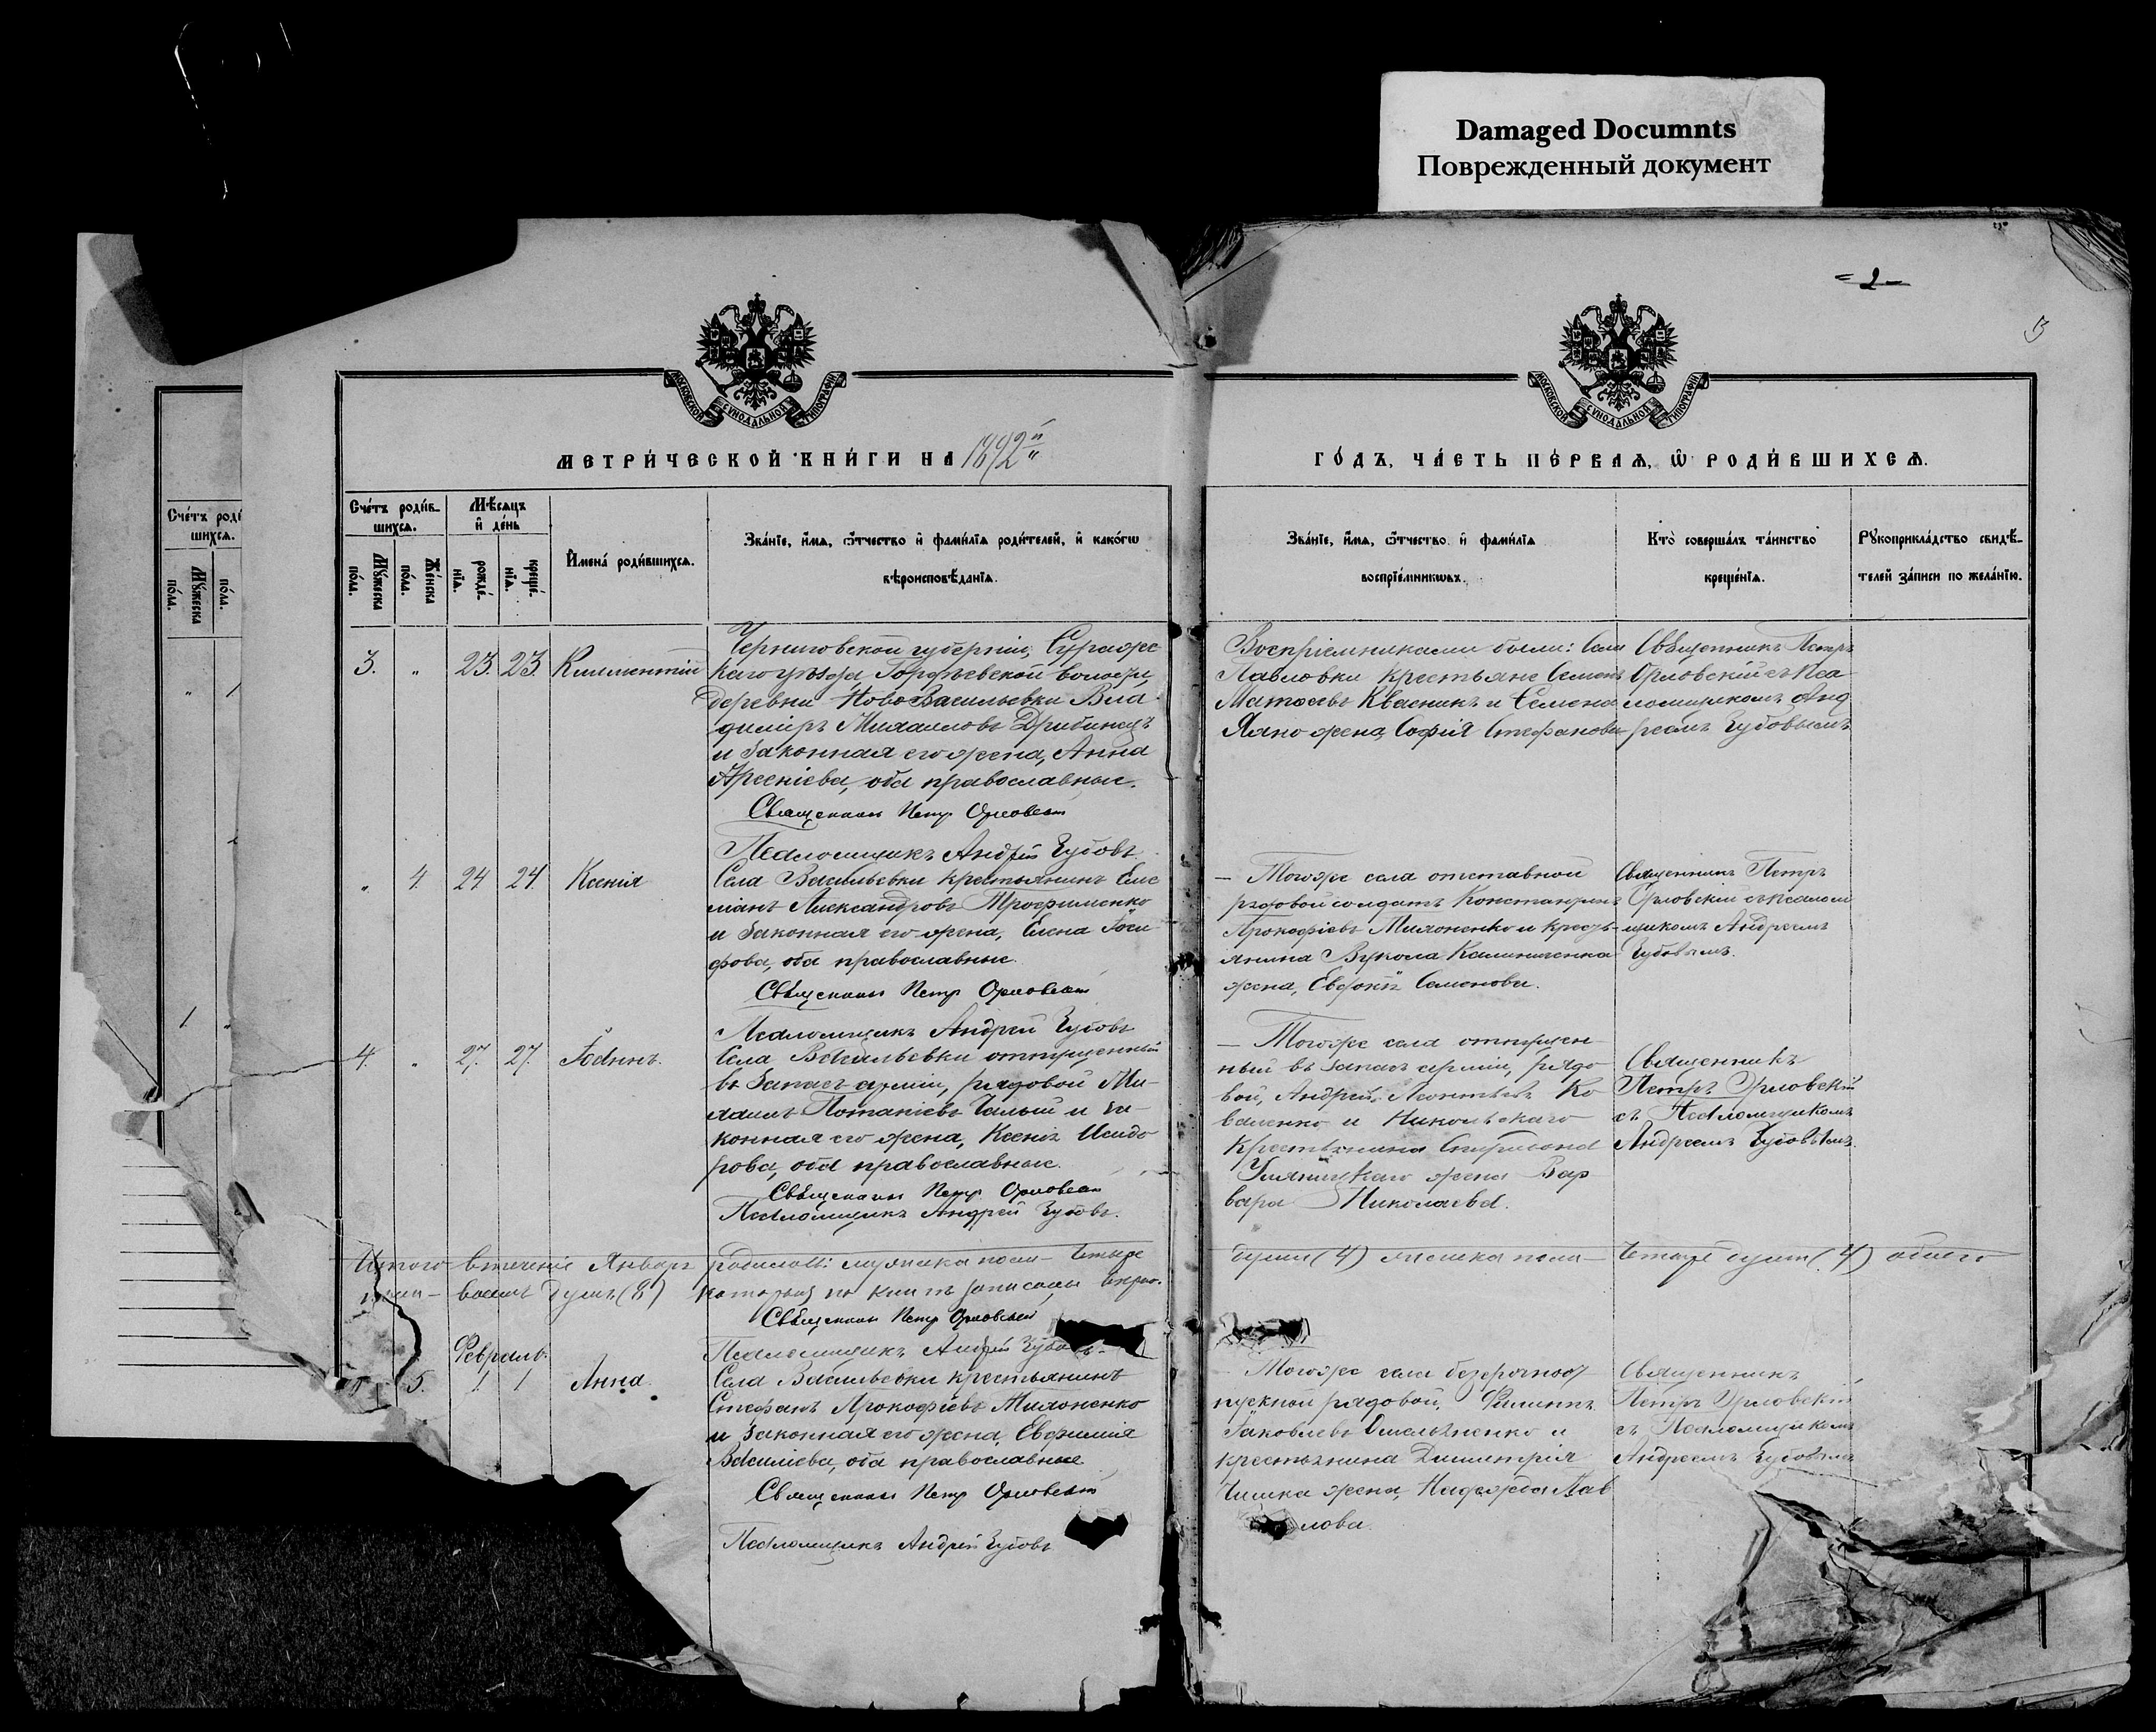 Damaged Documnts
Поврежденный документ
= 2 -
МОСКОВСКОЙ СѴНОДАЛЬНОЙ ТИПОГРАФІИ
МОСКОВСКОЙ СѴНОДАЛЬНОЙ ТИПОГРАФІИ
МЕТРИ́ЧЕСКОЙ КНИ́ГИ НА 1892
ГО́ДЪ, ЧА́СТЬ ПЕ́РВАЯ, Ѽ РОДИ́ВШИХСЯ.
Сче́тъ роди́
шихся.
Мꙋ́жеска по́ла.
по́ла.
Сче́тъ роди́в-
шихся.
Мꙋ́жеска по́ла.
Же́нска по́ла.
Мѣ́сяцъ
и҆ де́нь
рожде́-
нїя.
креще́-
нїя.
И҆мена̀ роди́вшихся.
Зва́нїе, и҆́мя, ѻ҆́тчество и҆ фами́лїя роди́телей, и҆ како́гѡ
вѣроисповѣ́данїя.
Зва́нїе, и҆́мя, ѻ҆́тчество и҆ фами́лїя
воспрїе́мникѡвъ.
Кто̀ соверша́лъ та́инство
креще́нїя.
Рꙋкоприкла́дство свидѣ́-
телей за́писи по жела́нїю.
3. " 23. 23. Климентій
Черниговской губерніи, Сураже
каго уѣзда, Гордѣевской волости,
деревни НовоВасильевки Вла
диміръ Михаиловъ Дрибинецъ
и законная его жена, Анна
Арсеніева, оба православные.
Священникъ Петр Орловскій
Псаломщикъ Андрей Зубовъ
Воспріемниками были: Села
Павловки крестьяне Семенъ
Матѳеевъ Квасникъ и Семена
жена, София Стефанова
Священникъ Петръ
Орловскій съ Пса
ломщикомъ Анд
реемъ Зубовымъ
" 4. 24 24. Ксенія
Села Васильевки крестьянинъ Еме
ліанъ Александровъ Трофименко
и законная его жена, Елена Іоси
фова, оба православные.
Священникъ Петр Орловскій
Псаломщикъ Андрей Зубовъ
— Тогоже села отставной
рядовой солдатъ Константинъ
Прокофіевъ Михоненко и кресть-
янина Вукола Калиниченка
жена, Евдокія Семенова.
Священникъ Петръ
Орловскій съ псалом
щикомъ Андреемъ
Зубовымъ.
4. " 27. 27. Іоаннъ.
Села Васильевки отпущенный
въ запасъ арміи, рядовой Ми-
хаилъ Потапіевъ Чалый и за-
конная его жена, Ксенія Исидо
рова, оба православные.
Священникъ Петр Орловскій
Псаломщикъ Андрей Зубовъ.
— Тогоже села отпущен-
ный въ запасъ арміи, рядо
вой, Андрей Леонтьевъ Ко
валенко и Никольскаго
крестьянина Спиридона
жена Вар
вара Николаева.
Священникъ
Петръ Орловскій
съ Псаломщикомъ
Андреемъ Зубовымъ.
Итого втеченіе Января родилось: мужеска пола — Четыре
души (4) женска пола — Четыре души (4) обоего
пола — восемь душъ (8)
Священникъ Петр Орловскій
Псаломщикъ Андрей Зубовъ
Февраль.
5. 1. 1 Анна.
Села Васильевки крестьянинъ
Стефанъ Прокофіевъ Михоненко
и законная его жена, Евфимія
Василіева, оба православные
Священникъ Петр Орловскій
Псаломщикъ Андрей Зубовъ
Тогоже села безсрочноот
пускной рядовой, Филиппъ
Іаковлевъ Емельяненко и
крестьянина Димитрія
жена, Надежда Пав
лова.
Священникъ
Петръ Орловскій
съ Псаломщикомъ
Андреемъ Зубовымъ